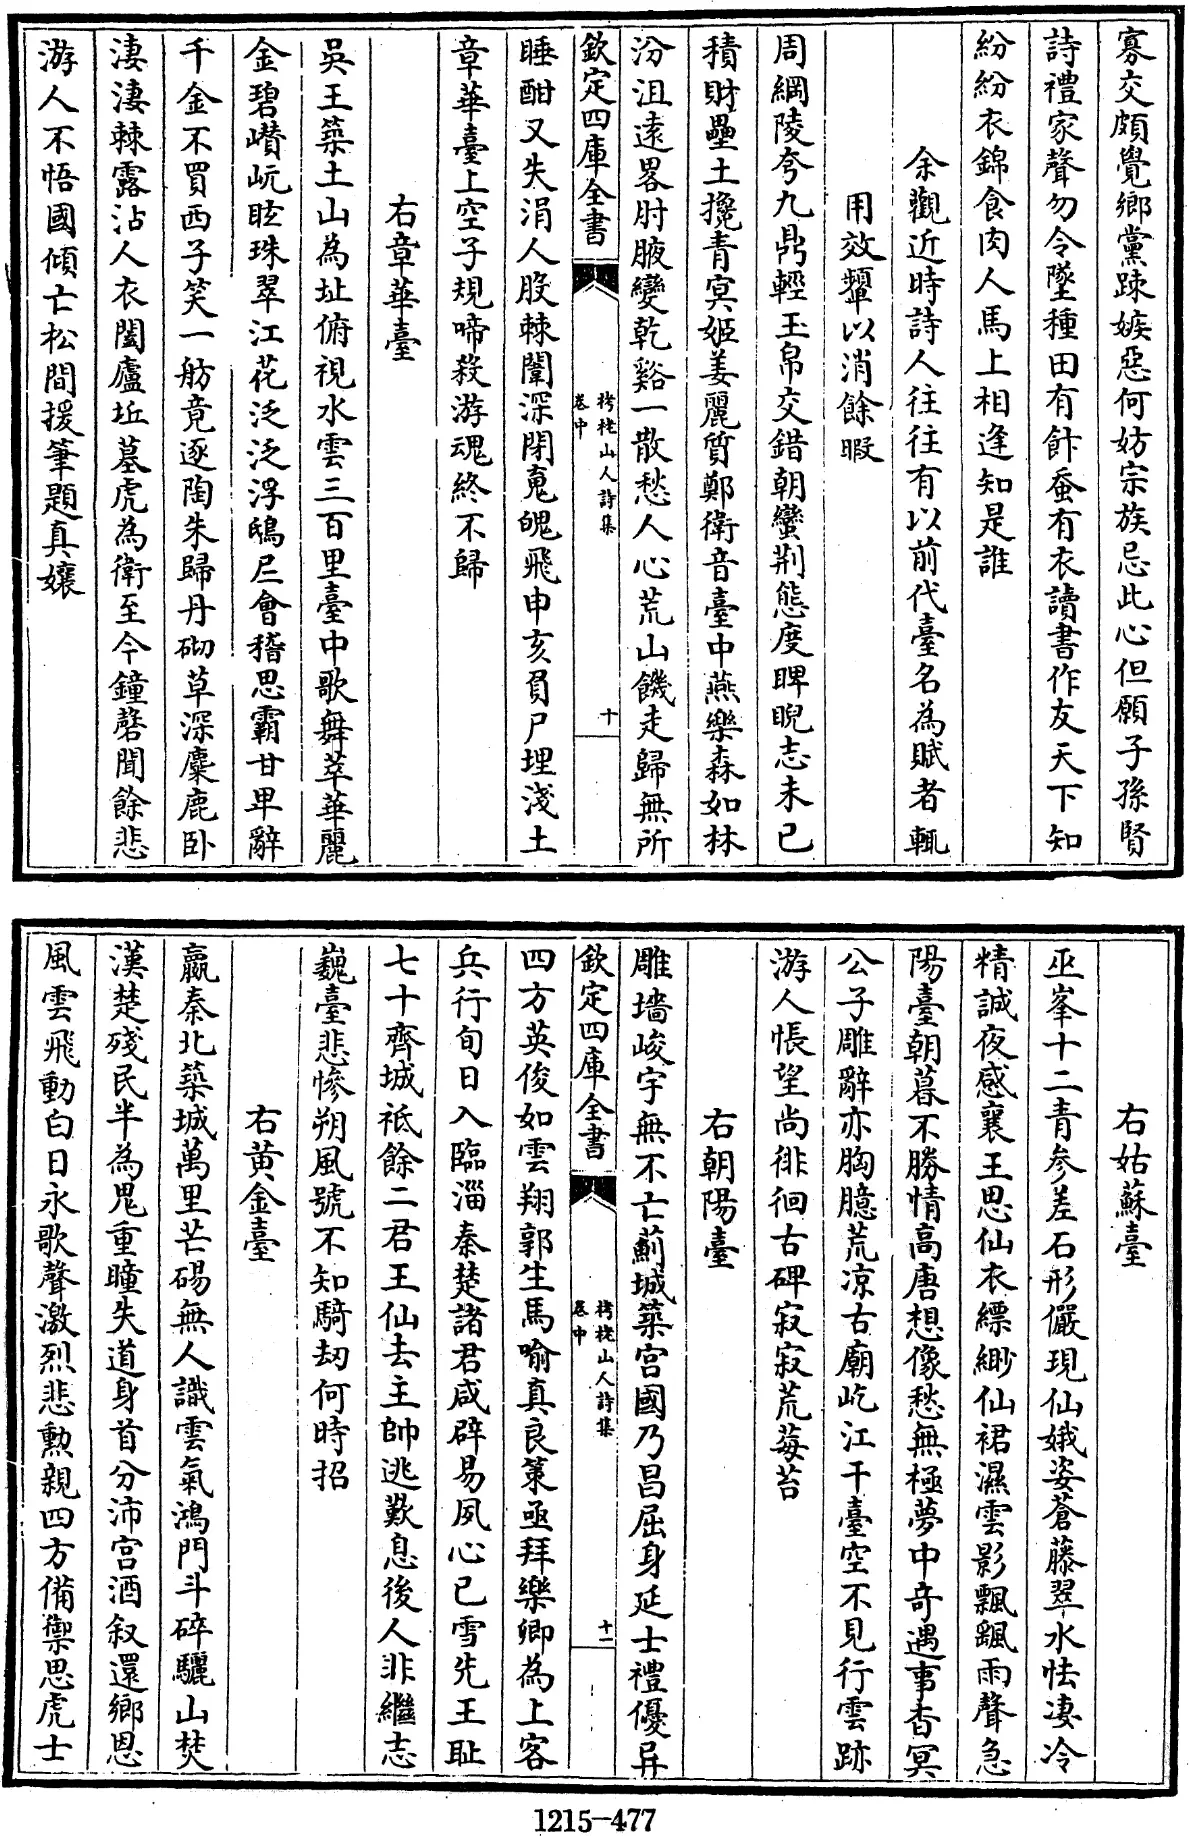 寡交頗覺鄉黨踈嫉惡何妨宗族忌此心但願子孫賢
詩禮家聲勿令墜種田有飰蚕有衣讀書作友天下知
紛紛衣錦食肉人馬上相逢知是誰
余觀近時詩人往往有以前代臺名為賦者輒
用效顰以消餘暇
周綱陵夸九鼎輕玉帛交錯朝蠻荆態度睥睨志未已
積財壘土攙青冥姬姜麗質鄭衛音臺中燕樂森如林
汾沮遠畧肘腋變乾谿一散愁人心荒山饑走歸無所
欽定四庫全書
栲栳山人詩集
卷中
十
睡酣又失涓人股棘闈深閉䰟魄飛申亥負尸埋淺土
章華臺上空子規啼殺游魂終不歸
右章華臺
吳王築土山為址俯視水雲三百里臺中歌舞萃華麗
金碧巑岏眩珠翠江花泛泛浮鴟夷會稽思霸甘卑辭
千金不買西子笑一舫竟逐陶朱歸丹砌草深麋鹿卧
淒淒棘露沾人衣闔廬坵墓虎為衛至今鐘磬聞餘悲
游人不悟國傾亡松間援筆題真孃
右姑蘇臺
巫峯十二青參差石形儼現仙娥姿蒼藤翠水怯凄冷
精誠夜感襄王思仙衣縹緲仙裙濕雲影飄颻雨聲急
陽臺朝暮不勝情高唐想像愁無極夢中奇遇事杳冥
公子雕辭亦胸臆荒凉古廟屹江干臺空不見行雲跡
游人悵望尚徘徊古碑寂寂荒莓苔
右朝陽臺
雕墻峻宇無不亡薊城築宮國乃昌屈身延士禮優异
欽定四庫全書
栲栳山人詩集
卷中
十一
四方英俊如雲翔郭生馬喻真良策亟拜樂卿為上客
兵行旬日入臨淄秦楚諸君咸辟易夙心已雪先王耻
七十齊城祗餘二君王仙去主帥逃歎息後人非繼志
巍臺悲慘朔風號不知騎刼何時招
右黃金臺
嬴秦北築城萬里芒碭無人識雲氣鴻門斗碎驪山焚
漢楚殘民半為鬼重瞳失道身首分沛宮酒叙還鄉恩
風雲飛動白日永歌聲激烈悲勲親四方備禦思虎士
1215-477